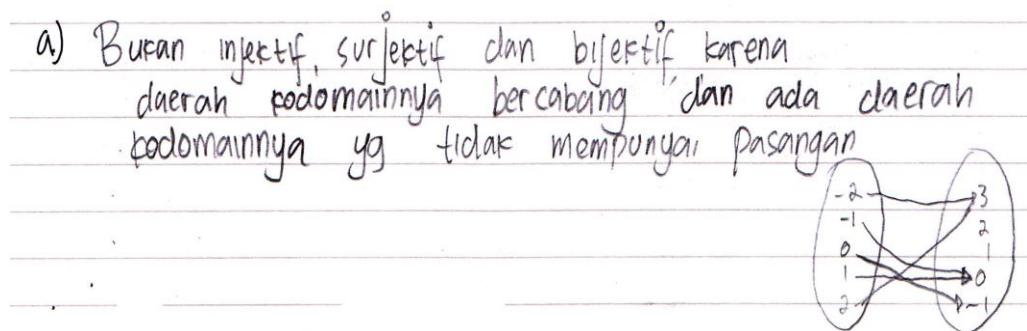 a) Bukan injektif, surjektif dan bijektif karena
daerah kodomainnya bercabang dan ada daerah
kodomainnya yg tidak mempunyai pasangan
-2 3
-1 2
0 1
1 0
2 -1